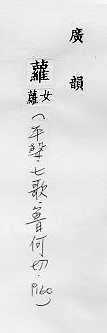 廣韻
蘿女蘿(平聲.七歌.魯何切.P160)